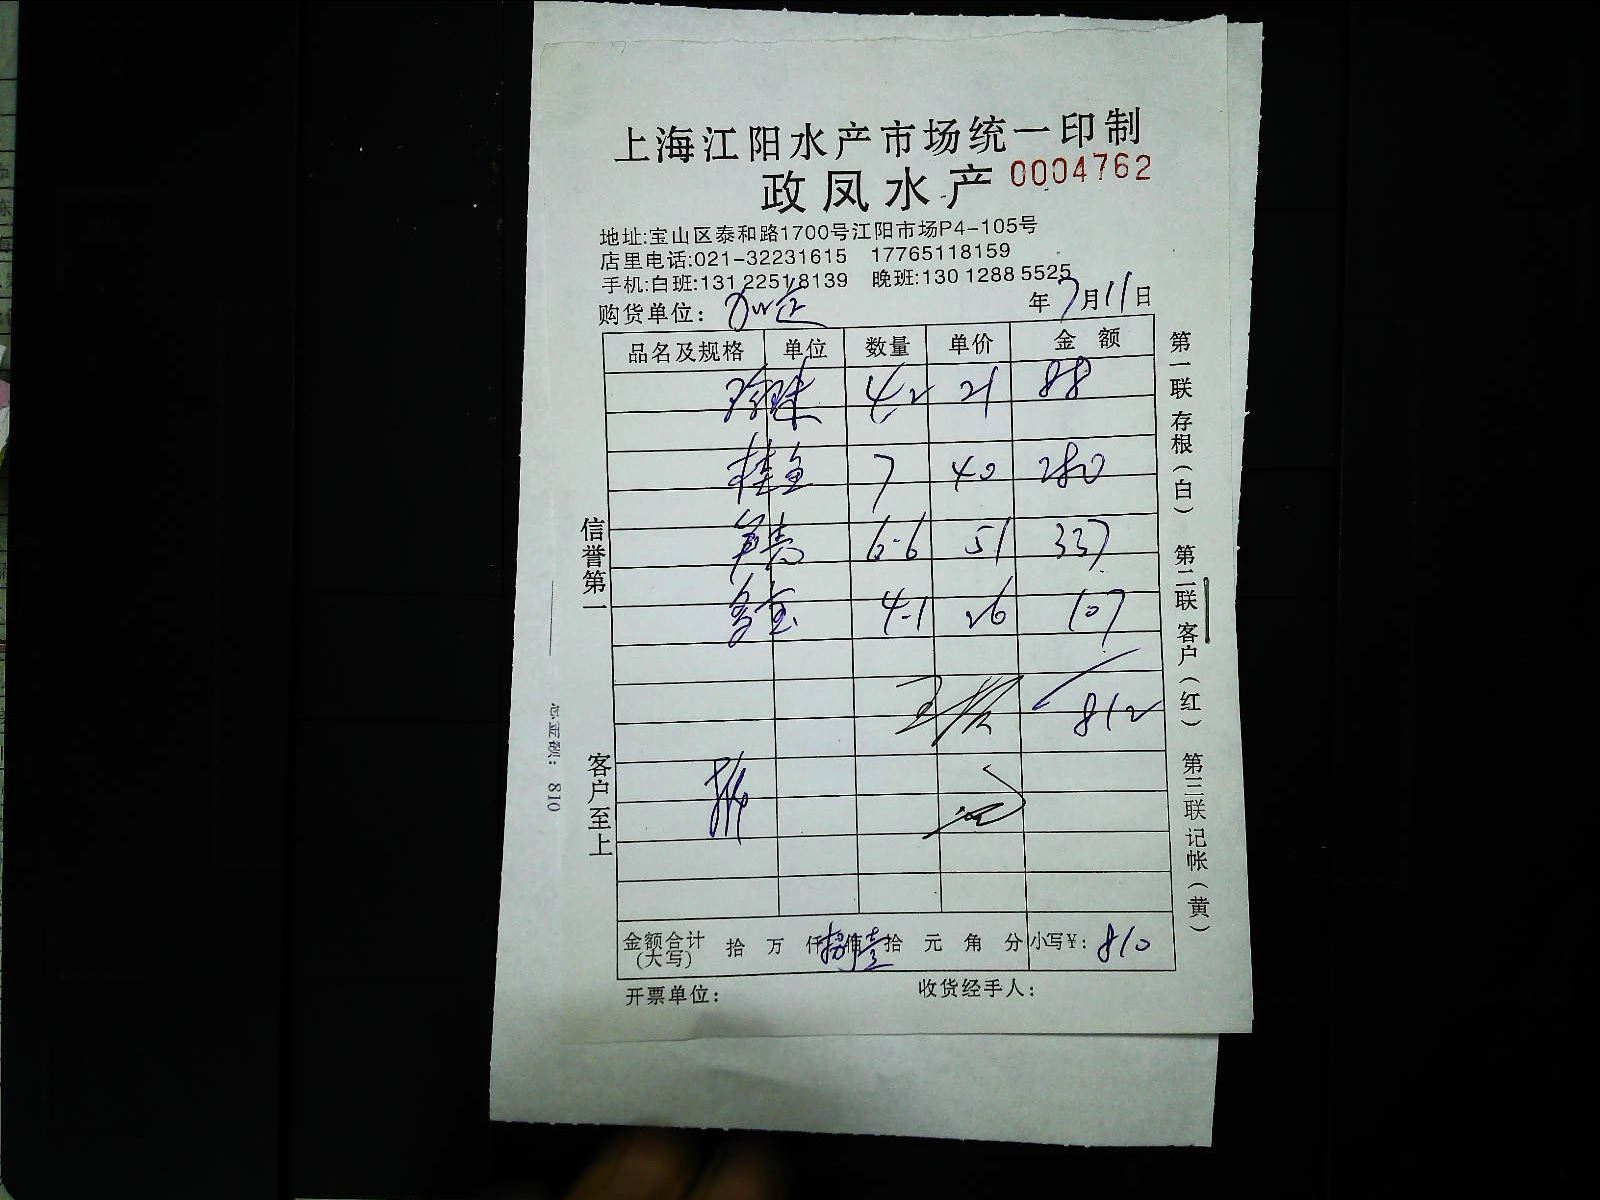 上海江阳水产市场统一印制
政凤水产 0004762
地址:宝山区泰和路1700号江阳市场P4-105号
店里电话:021-32231615 17765118159
手机:白班:131 2251 8139 晚班:130 1288 5525
购货单位: 加定 年7月11日
品名及规格 单位 数量 单价 金额
珍珠 42 21 88
桂鱼 7 40 280
6.6 51 337
多宝 4.1 26 107
812
金额合计(大写) 拾 万 仟捌佰壹拾 元 角 分 小写¥: 810
开票单位: 收货经手人:
信誉第一 客户至上
第一联存根(白) 第二联客户(红) 第三联记帐(黄)
总金额: 810